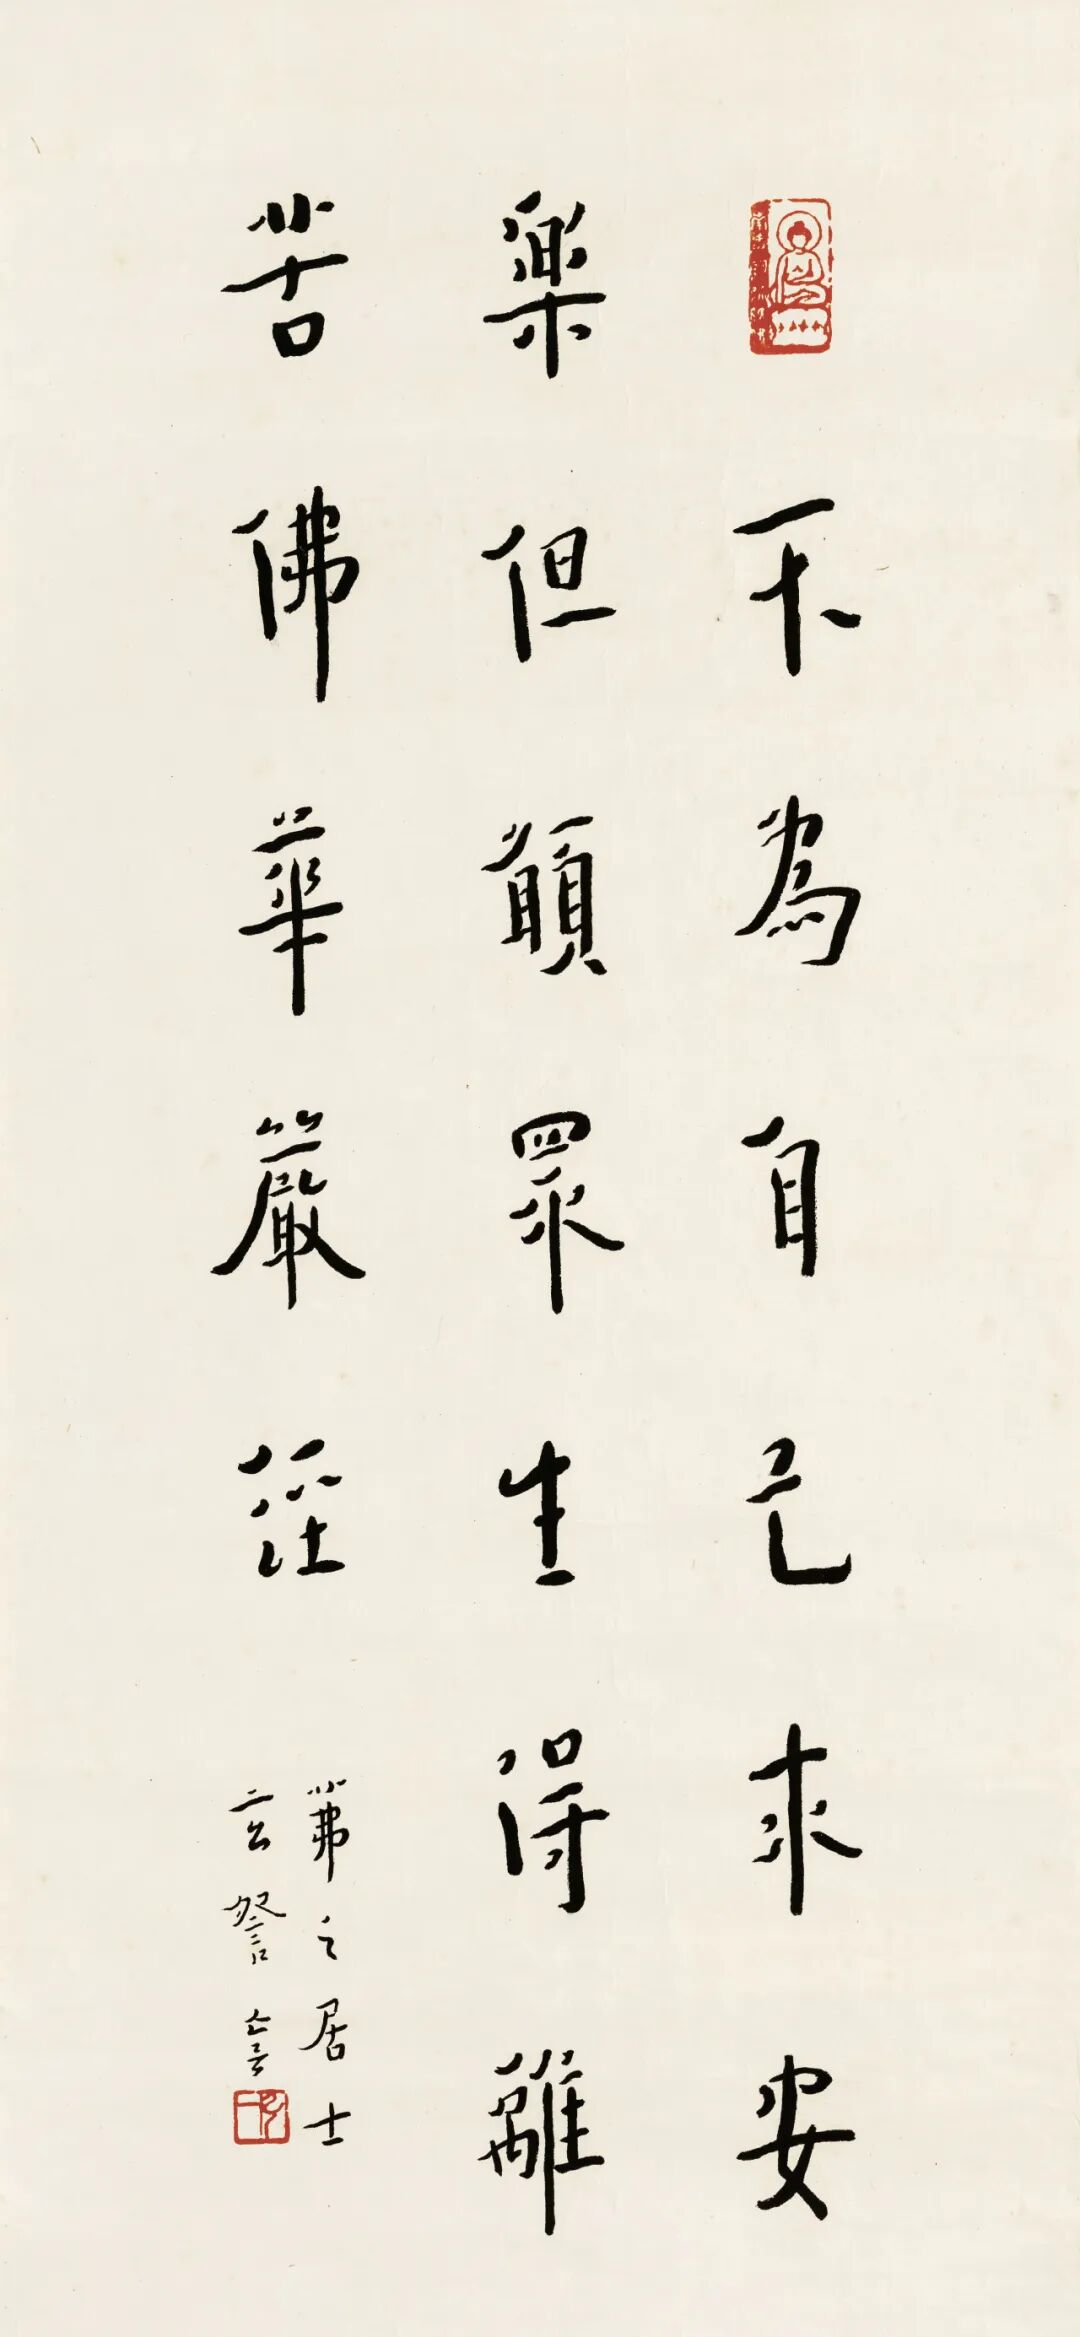 不為自己求安
樂但願眾生得離
苦佛華嚴經
茀之居士
玄詧